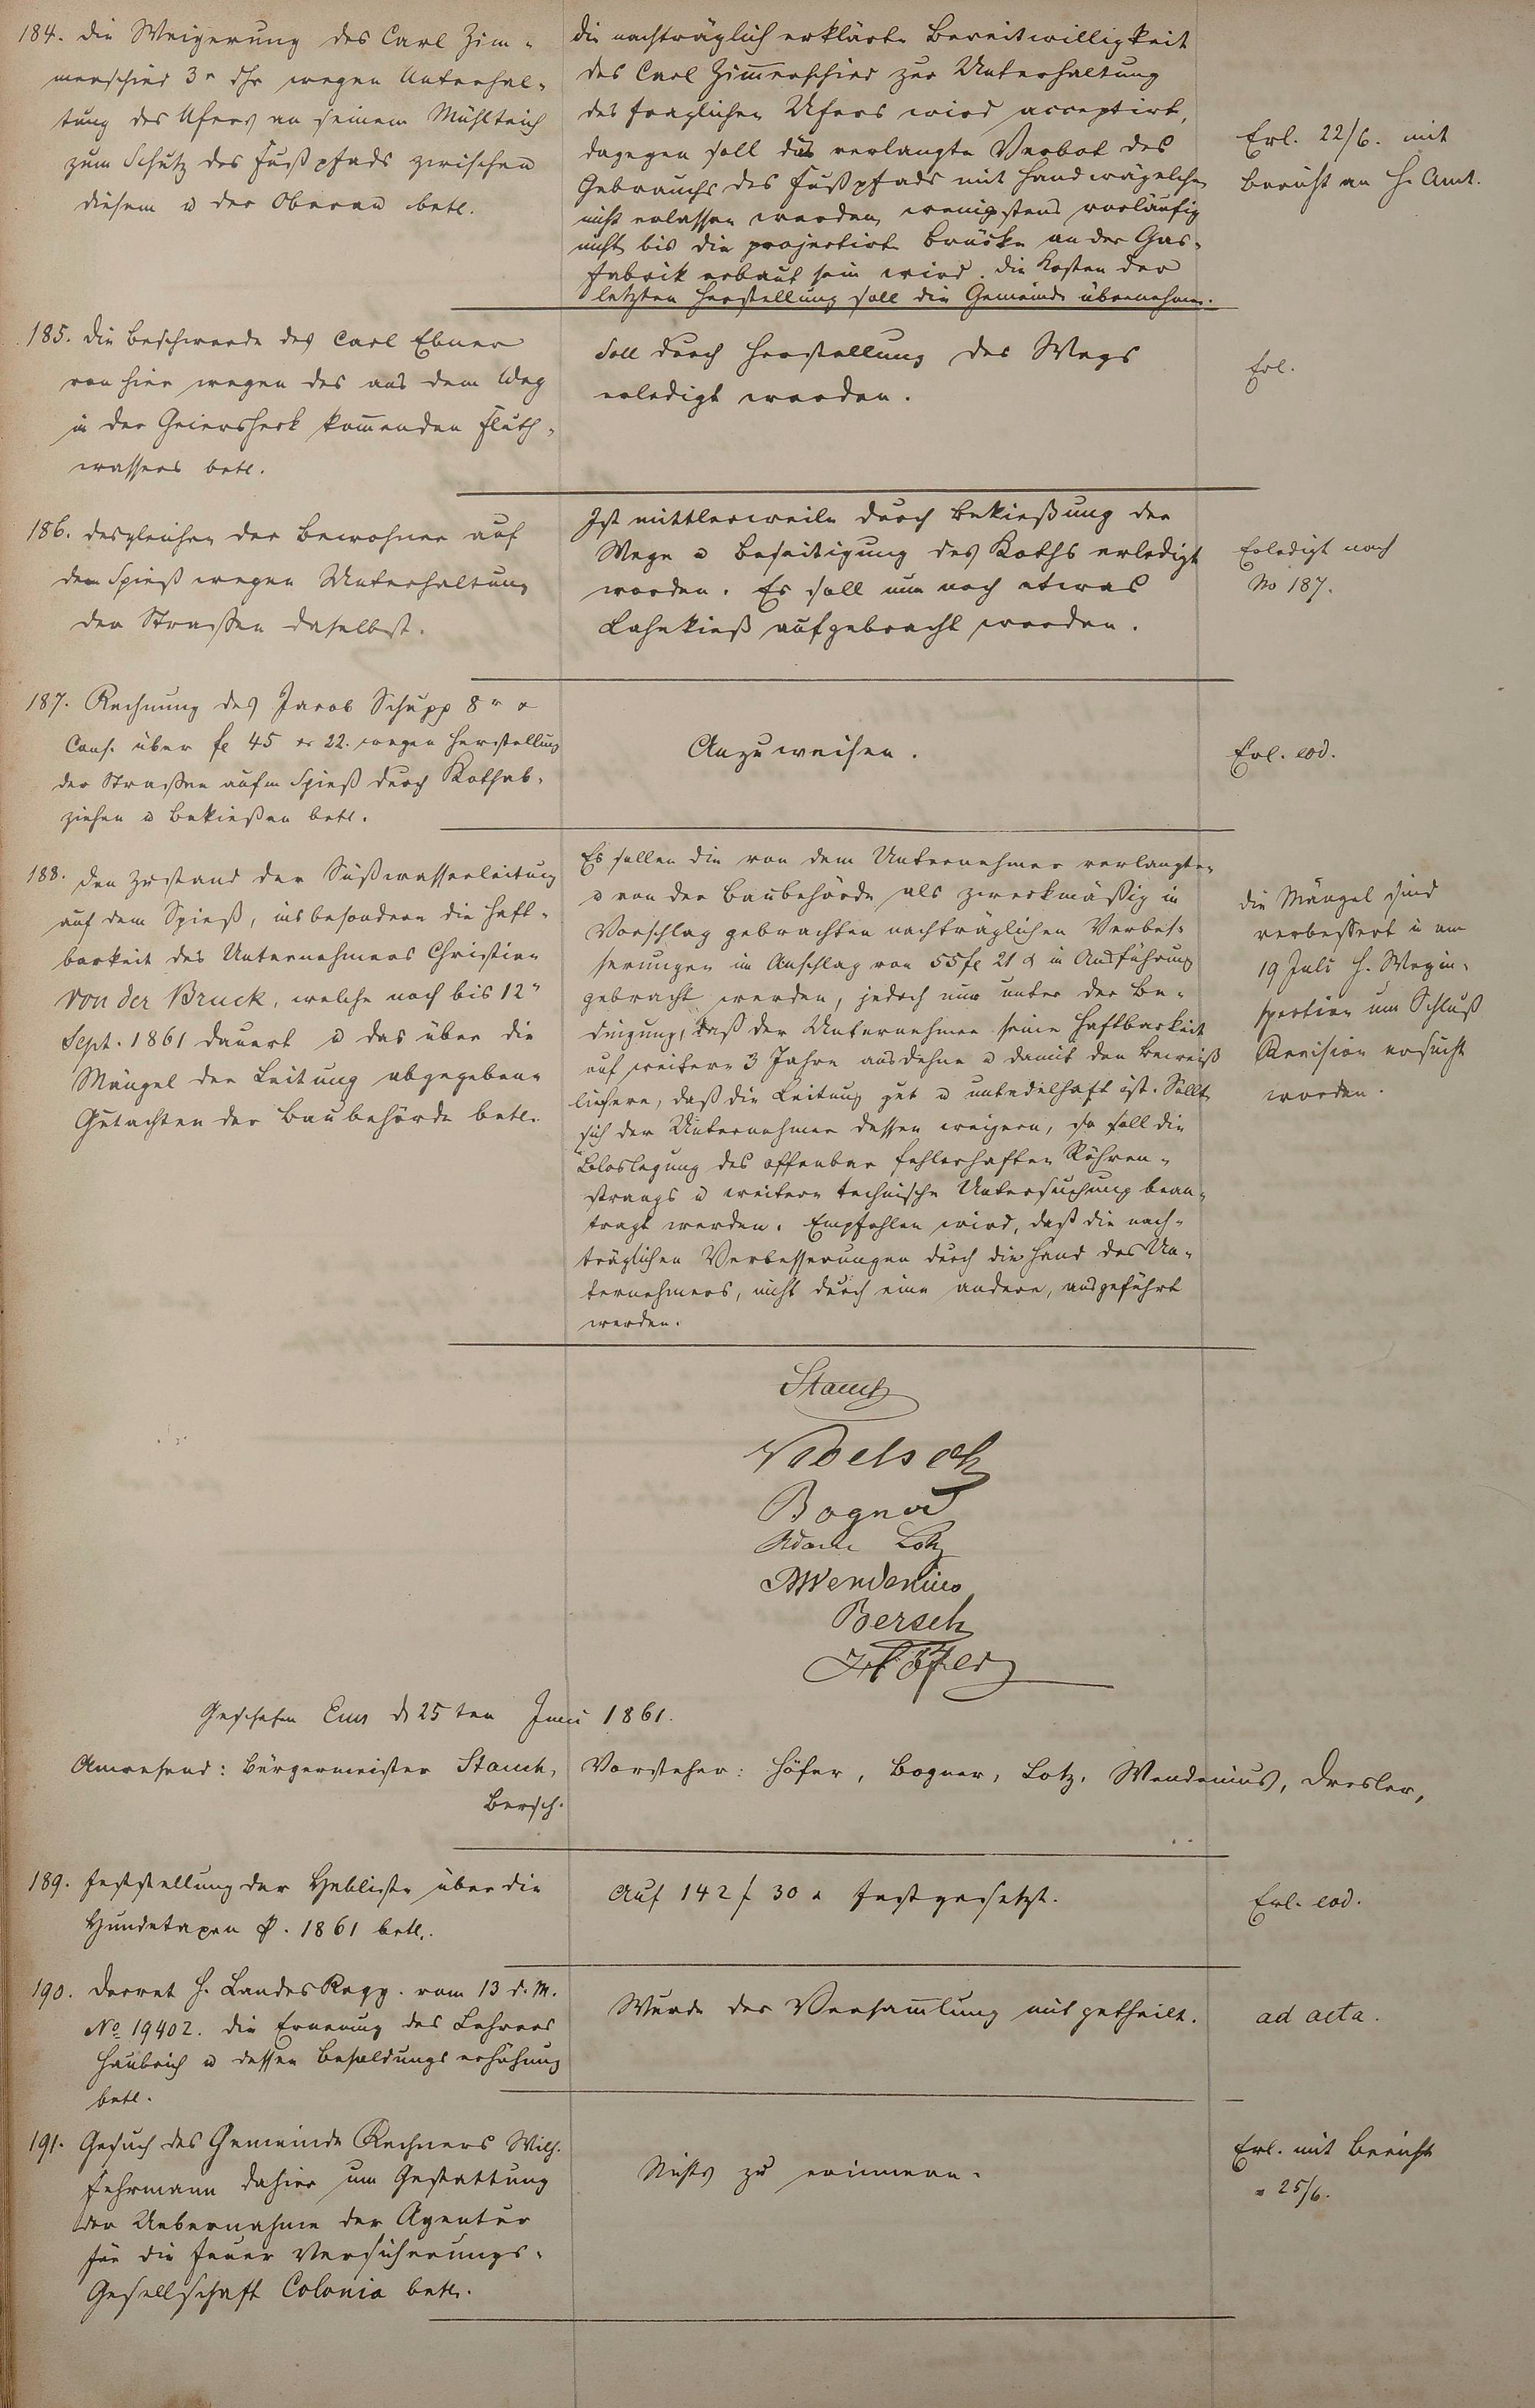 184. die Weigerung des Carl Zim-
merschied 3r dhr wegen Unterhal-
tung des Ufers an seinem Mühlteich
zum Schutz des Fußpfads zwischen
diesem u der Oberau betr.
die nachträglich erklärte Bereitwilligkeit
des Carl Zimerschied zur Unterhaltung
des fraglichen Ufers wird acceptirt,
dagegen soll das verlangte Verbot des
Gebrauchs des Fußpfads mit Handwägelchen
nicht erlassen werden, wenigstens vorläufig
nicht bis die projectirte Brücke an der Gas-
fabrik erbaut sein wird. die Kosten der
letzten Herstellung soll die Gemeinde übernehmen.
Erl. 22/6. mit
Bericht an H. Amt.
185. die Beschwerde des Carl Ebner
von hier wegen des aus dem Weg
in der Geiersheck komenden Fluth-
wassers betr.
Soll durch Herstellung des Wegs
erledigt werden.
Erl.
186. desgleichen der Bewohner auf
dem Spieß wegen Unterhaltung
der Straßen daselbst.
Ist mittlerweile durch Bekießung der
Wege u Beseitigung des Koths erledigt
worden. Es soll nun noch etwas
Lahnkieß aufgebracht werden.
Erledigt nach
No 187.
187. Rechnung des Jacob Schupp 8r &
Cons. über fl 45 xr 22. wegen Herstellung
der Straßen aufm Spieß durch Kothab-
ziehen u Bekießen betr.
Anzuweisen.
Erl. eod.
188. den Zustand der Süßwasserleitung
auf dem Spieß, insbesondere die Haft-
barkeit des Unternehmers Christian
von der Bruck, welche noch bis 12n
Sept. 1861 dauert u das über die
Mängel der Leitung abgegebene
Gutachten der Baubehörde betr.
Es sollen die von dem Unternehmer verlangten
u von der Baubehörde als zweckmäßig in
Vorschlag gebrachten nachträglichen Verbes-
serungen im Anschlag von 55 fl 21 x in Ausführung
gebracht werden, jedoch nur unter der Be-
dingung, daß der Unternehmer seine Haftbarkeit
auf weitere 3 Jahre ausdehne u damit den Beweiß
liefere, daß die Leitung gut u untadelhaft ist. Sollte
sich der Unternehmer dessen weigern, so soll die
Bloslegung des offenbar fehlerhaften Röhren-
strangs u weitere technische Untersuchung bean-
tragt werden. Empfohlen wird, daß die nach-
träglichen Verbesserungen durch die Hand des Un-
ternehmers, nicht durch eine andere, ausgeführt
werden.
die Mängel sind
verbessert u am
19 Juli H. Wegin-
spection um Schluß
Revision ersucht
worden.
Stauch
Bogner
Adam Lotz
Wendenius
Bersch
Höfer
Geschehen Ems d 25ten Juni 1861.
Anwesend: Bürgermeister Stauch, Vorsteher: Höfer, Bogner, Lotz, Wendenius, Dresler,
Bersch.
189. Feststellung der Hebliste über die
Hundetaxen p. 1861 betr.
Auf 142 f 30 x festgesetzt.
Erl. eod.
190. Decret H. LandesRegg. vom 13 d. M.
No 19402. die Ernenung des Lehrers
Haubrich u dessen Besoldungserhöhung
betr.
Wurde der Versamlung mitgetheilt.
ad acta.
191. Gesuch des Gemeinde Rechners Wilh.
Fehrmann dahier um Gestattung
der Uebernahme der Agentur
für die Feuer Versicherungs-
Gesellschaft Colonia betr.
Nichts zu erinnern.
Erl. mit Bericht
v 25/6.